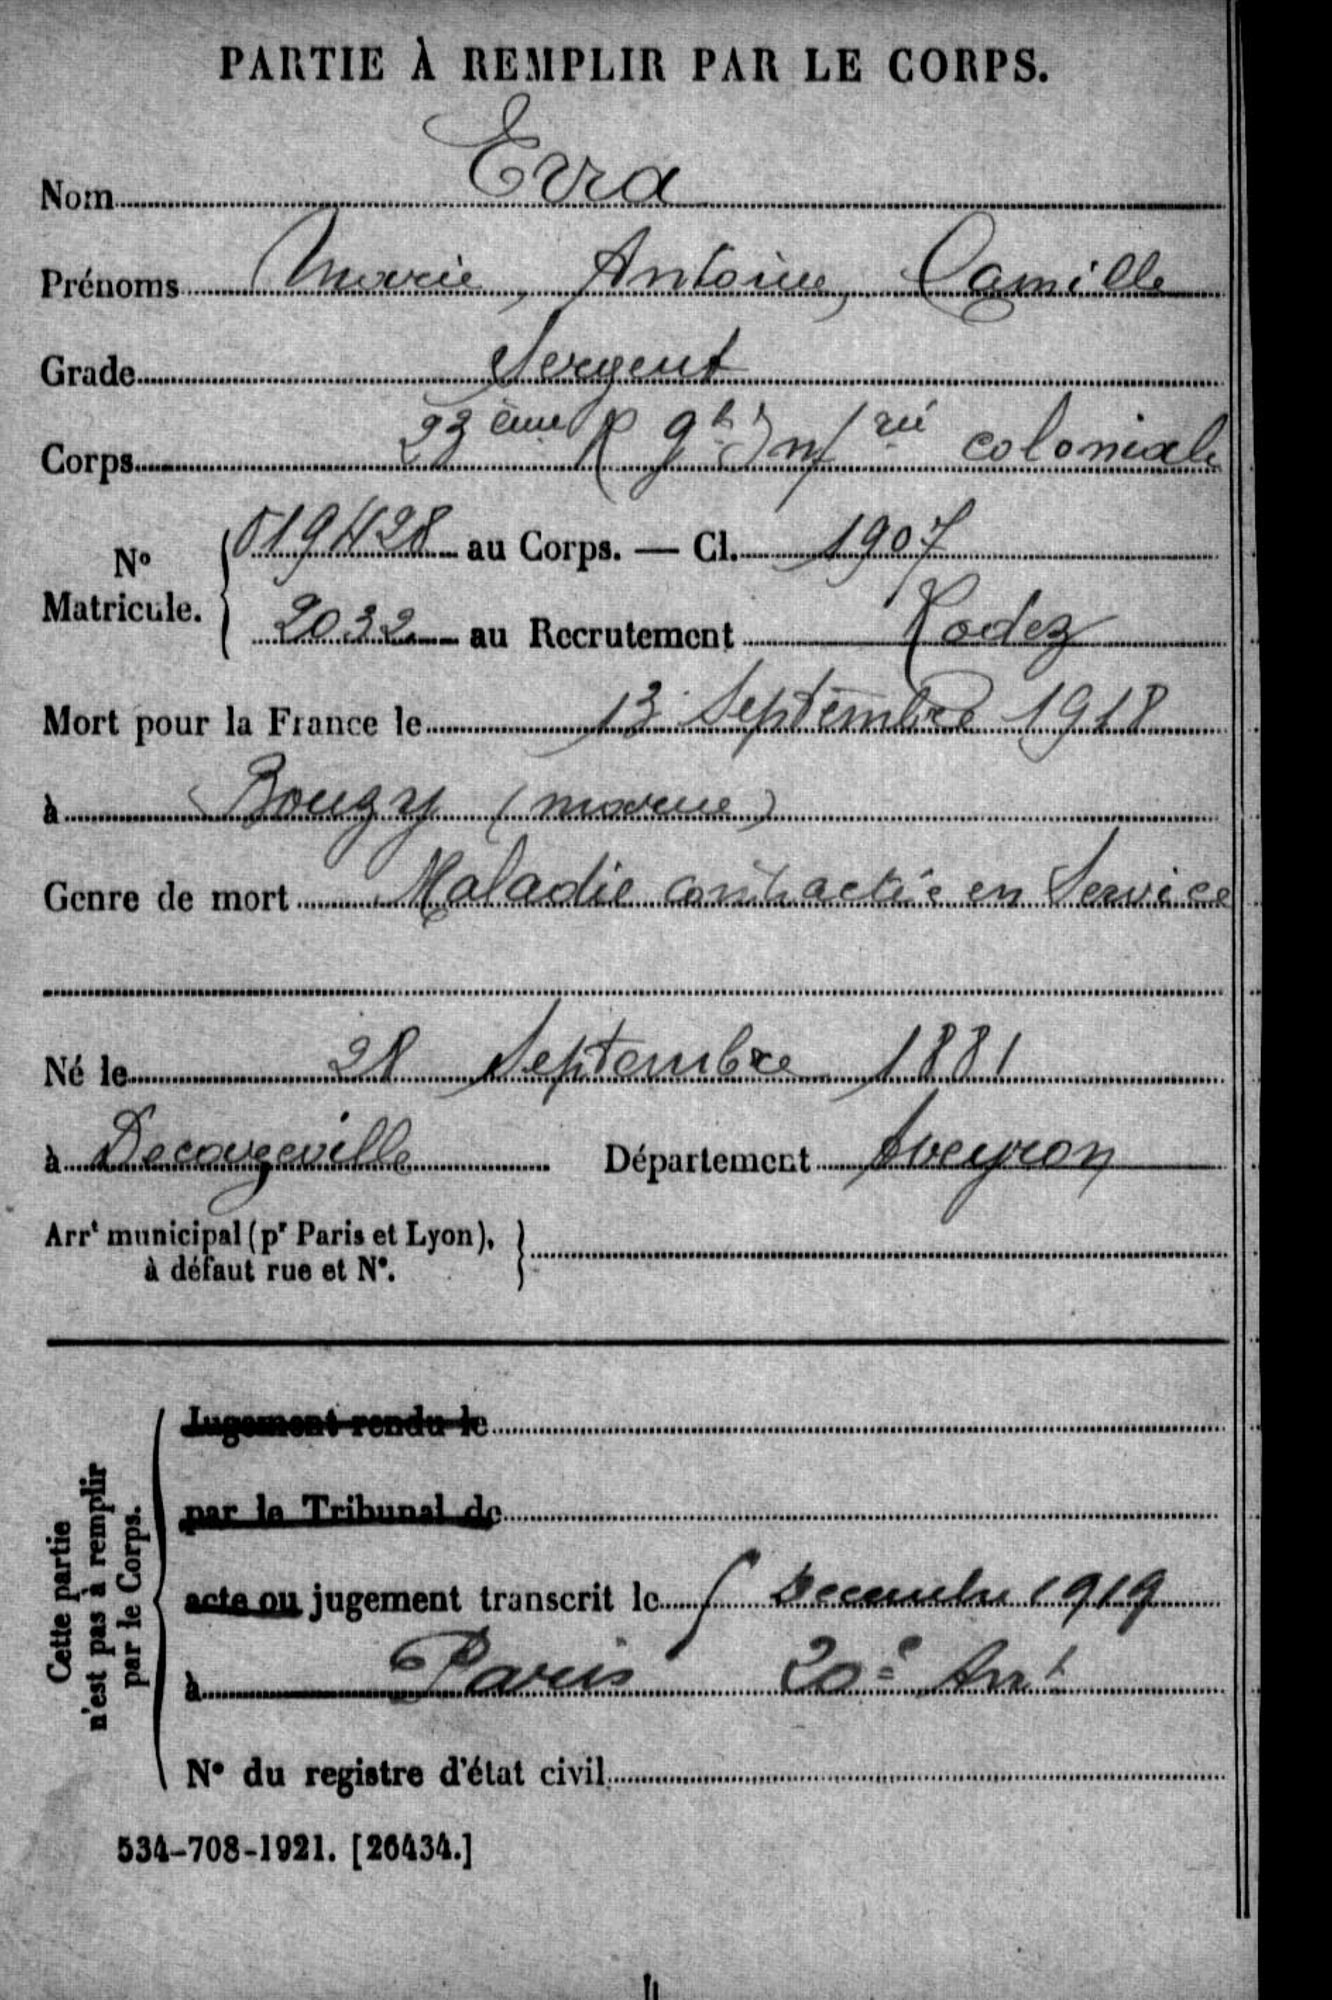 PARTIE À REMPLIR PAR LE CORPS.
Nom Erra
Prénoms Marie, Antoine, Camille
Grade Sergent
Corps 23ème Rgt Infrie coloniale
No Matricule. 019428 au Corps. — Cl. 1907
2032 au Recrutement Rodez
Mort pour la France le 13 Septembre 1918
à Bouzy (marne)
Genre de mort Maladie contractée en Service
Né le 28 Septembre 1881
à Decazeville Département Aveyron
Arrt municipal (pr Paris et Lyon),
à défaut rue et No.
Cette partie
n'est pas à remplir
par le Corps.
Jugement rendu le
par le Tribunal de
acte ou jugement transcrit le Decembre 1919
à Paris 20e Arrt
No du registre d'état civil
534-708-1921. [26434.]